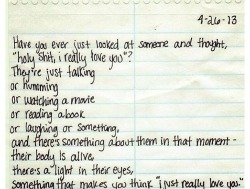 4-26-13
Have you ever just looked at someone and thought,
"holy shit, i really love you"?
They're just talking
or humming
or watching a movie
or reading a book
or laughing or something,
and there's something about them in that moment -
their body is alive,
there's a light in their eyes,
something that makes you think "i just really love you."